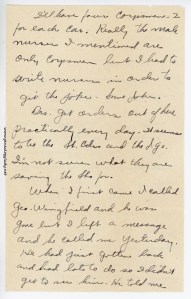 I'll have four Corpsmen - 2
for each Car. Really the male
nurses I mentioned are
only Corpsmen but I had to
write nurses in order to
get the joke. Some Joke.
Drs. get orders out of here
practically every day. It seems
to be the St. Odes and the
I'm not sure what they are
saving the for.
When I first came I called
Geo. Wingfield and he was
gone but I left a message
and he called me yesterday.
He had just gotten back
and had lots to do so I didn't
get to see him. He told me